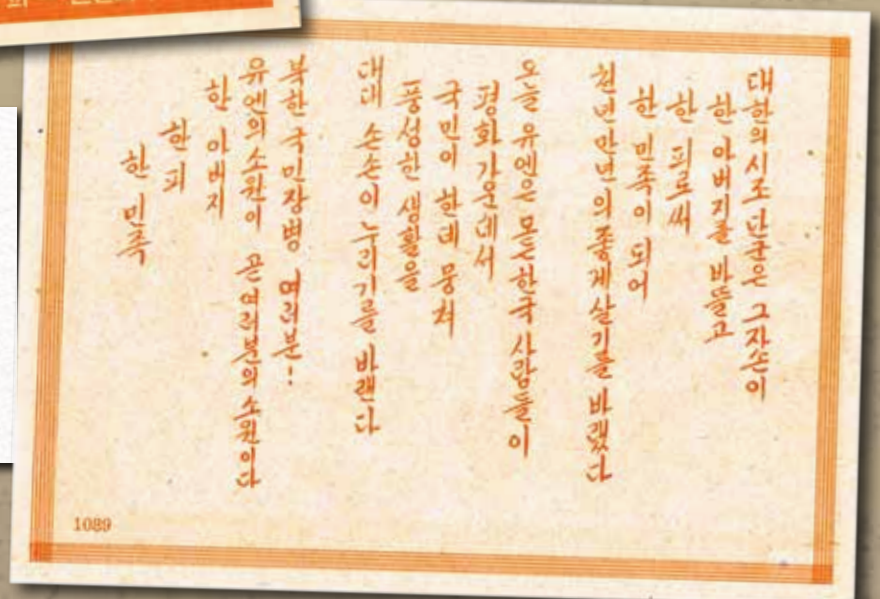 대한의 시조 단군은 그 자손이
한 아버지를 바뜰고
한 피로써
한 민족이 되어
천년만년의 좋게 살기를 바랬다
오늘 유엔은 모든 한국 사람들이
평화 가운데서
국민이 한데 뭉쳐
풍성한 생활을
대대 손손이 누리기를 바랜다
북한 국민장병 여러분!
유엔의 소원이 곧 여러분의 소원이다
한 아버지
한 피
한 민족
1089